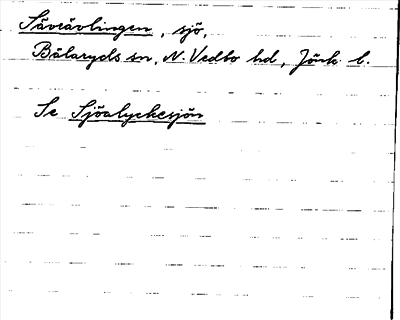 Säveävlingen, sjö,
Bälaryds sn, N. Vedbo hd, Jönk. l.
Se Sjöalyckesjön